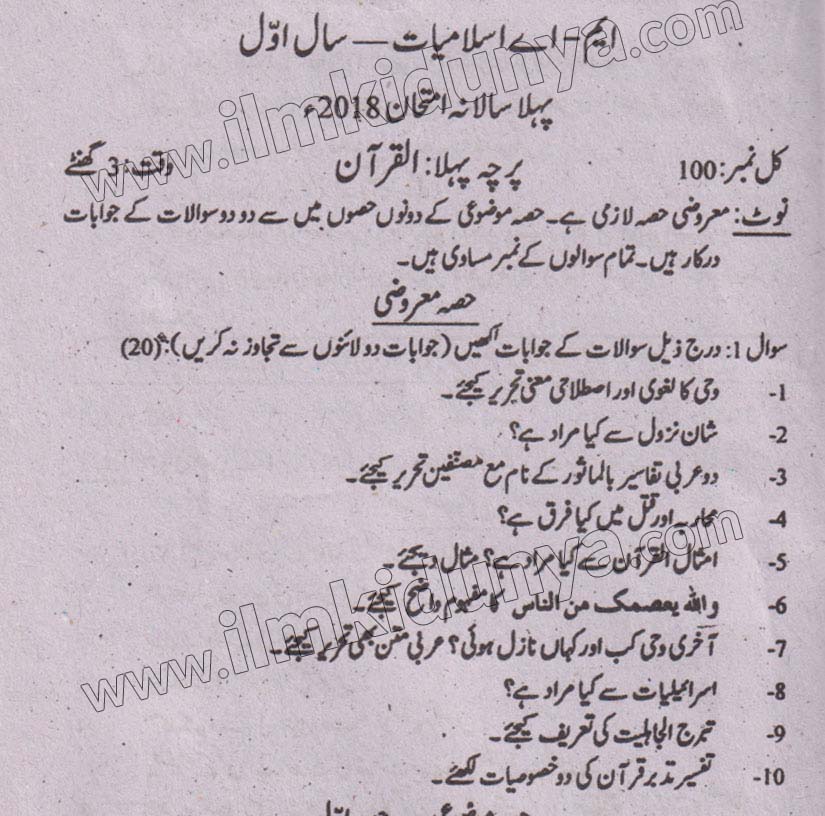 ایم-اے اسلامیات — سال اوّل
پہلا سالانہ امتحان 2018ء
کل نمبر: 100 پرچہ پہلا: القرآن وقت: 3 گھنٹے
نوٹ: معروضی حصہ لازمی ہے۔ حصہ موضوعی کے دونوں حصوں میں سے دو دو سوالات کے جوابات
درکار ہیں۔ تمام سوالوں کے نمبر مساوی ہیں۔
حصہ معروضی
سوال 1: درج ذیل سوالات کے جوابات لکھیں (جوابات دو لائنوں سے تجاوز نہ کریں): (20)
1- وحی کا لغوی اور اصطلاحی معنی تحریر کیجئے۔
2- شان نزول سے کیا مراد ہے؟
3- دو عربی تفاسیر بالماثور کے نام مع مصنفین تحریر کیجئے۔
4- محاربہ اور قتل میں کیا فرق ہے؟
5- امثال القرآن سے کیا مراد ہے؟ مثال دیجئے۔
6- والله يعصمك من الناس کا مفہوم واضح کیجئے۔
7- آخری وحی کب اور کہاں نازل ہوئی؟ عربی متن بھی تحریر کیجئے۔
8- اسرائیلیات سے کیا مراد ہے؟
9- تبرج الجاہلیت کی تعریف کیجئے۔
10- تفسیر تدبر قرآن کی دو خصوصیات لکھئے۔
www.ilmkidunya.com
www.ilmkidunya.com